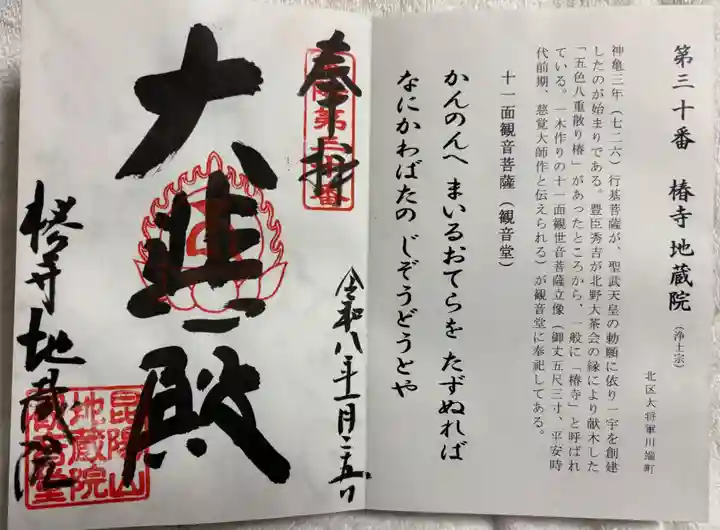 第三十番 椿寺 地蔵院 (浄土宗)
北区大将軍川端町
神亀三年(七二六)行基菩薩が、聖武天皇の勅願に依り一宇を創建
したのが始まりである。豊臣秀吉が北野大茶会の縁により献木した
「五色八重散り椿」があったところから、一般に「椿寺」と呼ばれ
ている。一木作りの十一面観世音菩薩立像(御丈五尺三寸、平安時
代前期、慈覚大師作と伝えられる)が観音堂に奉祀してある。
十一面観音菩薩(観音堂)
かんのんへ まいるおてらを たずぬれば
なにかわばたの じぞうどうとや
奉拝
第三十番
令和八年一月二五日
大悲殿
椿寺地蔵院
昆陽山
地蔵院
観音堂